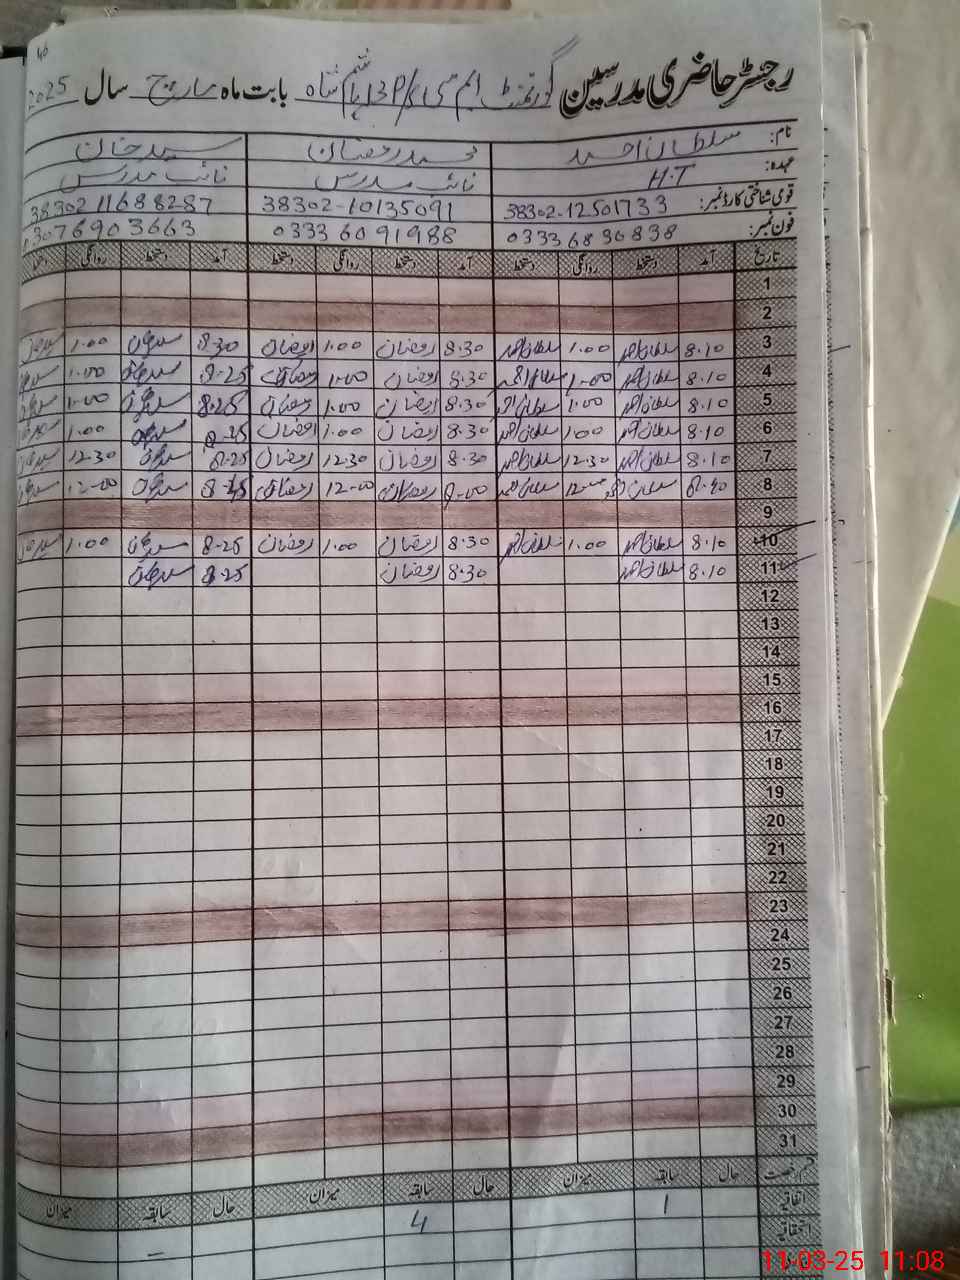 46
رجسٹر حاضری مدرسین گورنمنٹ ایم سی P/S بابت ماہ مارچ سال 2025
نام: سلطان احمد محمد رمضان سعید خان
عہدہ: H.T نائب مدرس نائب مدرس
قومی شناختی کارڈ نمبر: 38302-12501733 38302-10135091 38302 11688287
فون نمبر: 03336830838 03336091988 03076903663
تاریخ آمد دستخط روانگی دستخط آمد دستخط روانگی دستخط آمد دستخط روانگی دستخط
1
2
3 8.10 سلطان احمد 1.00 سلطان احمد 8.30 رمضان 1.00 رمضان 8.30 سعید خان 1.00 سعید خان
4 8.10 سلطان احمد 1-00 سلطان احمد 8.30 رمضان 1-00 رمضان 8.25 سعید خان 1-00 سعید خان
5 8.10 سلطان احمد 1.00 سلطان احمد 8.30 رمضان 1.00 رمضان 8.25 سعید خان 1-00 سعید خان
6 8.10 سلطان احمد 1.00 سلطان احمد 8.30 رمضان 1.00 رمضان 8.25 سعید خان 1.00 سعید خان
7 8.10 سلطان احمد 12.30 سلطان احمد 8.30 رمضان 12.30 رمضان 8.25 سعید خان 12.30 سعید خان
8 سلطان احمد 12-00 سلطان احمد رمضان 12-00 رمضان سعید خان 12-00 سعید خان
9
10 8.10 سلطان احمد 1.00 سلطان احمد 8.30 رمضان 1.00 رمضان 8-25 سعید خان 1.00 سعید خان
11 8.10 سلطان احمد 8.30 رمضان 8.25 سعید خان
12
13
14
15
16
17
18
19
20
21
22
23
24
25
26
27
28
29
30
31
قسم رخصت حال سابقہ میزان حال سابقہ میزان حال سابقہ میزان
اتفاقیہ 1 4 –
استحقاقیہ
11-03-25 11:08